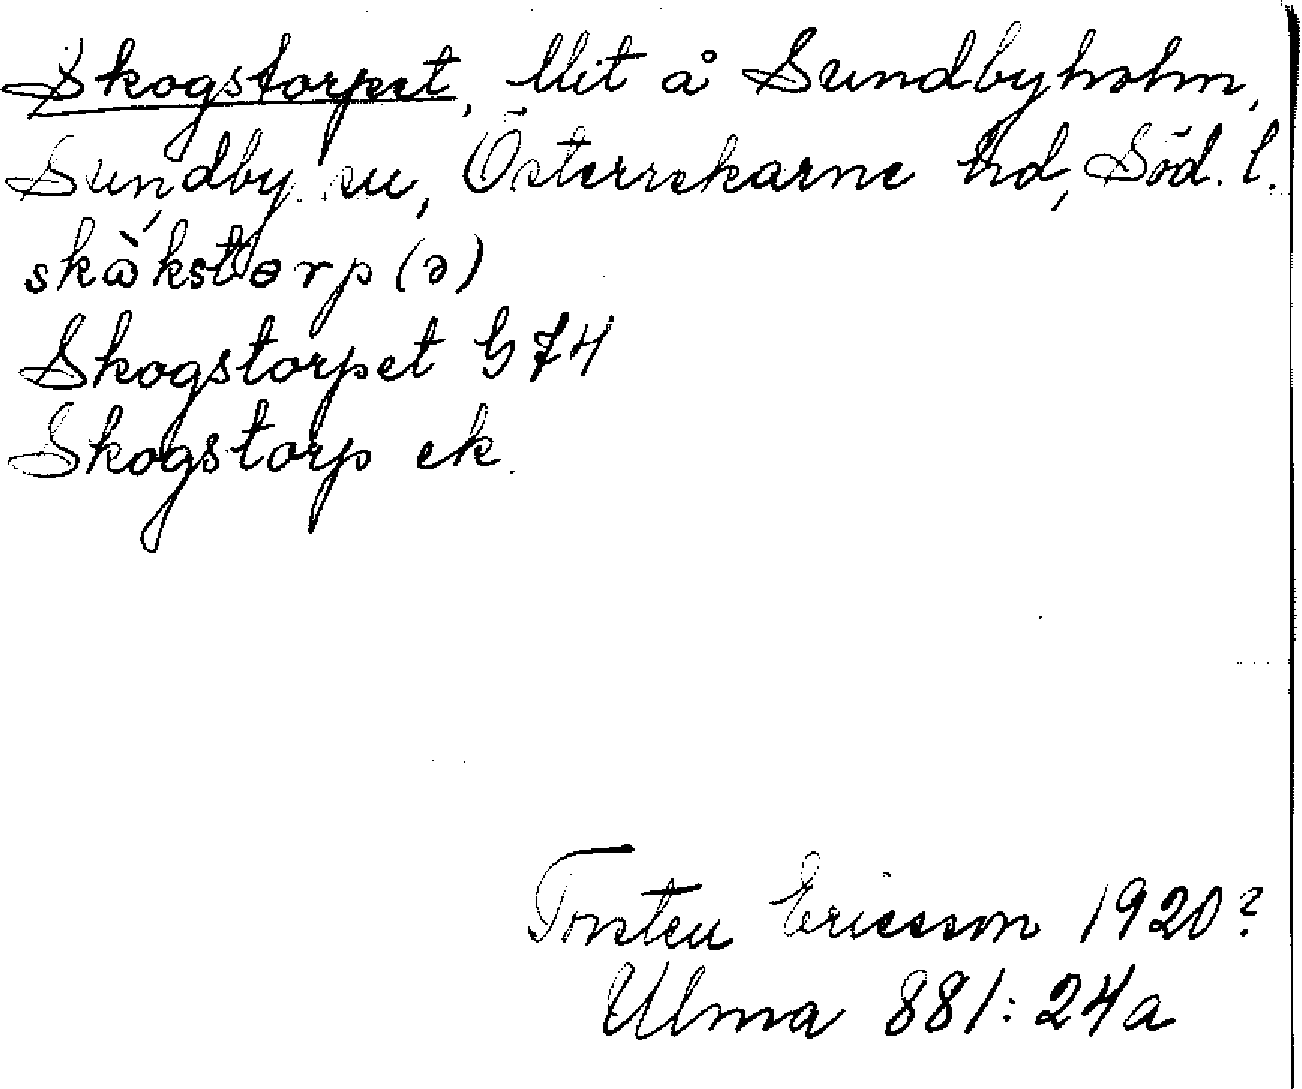 Skogstorpet, Utit å Sundbyholm,
Sundby sn, Österrekarne hd, Söd. l.
skòkstɵrp(ə)
Skogstorpet G 74
Skogstorp ek.
Torsten Ericsson 1920?
Ulma 881:24a